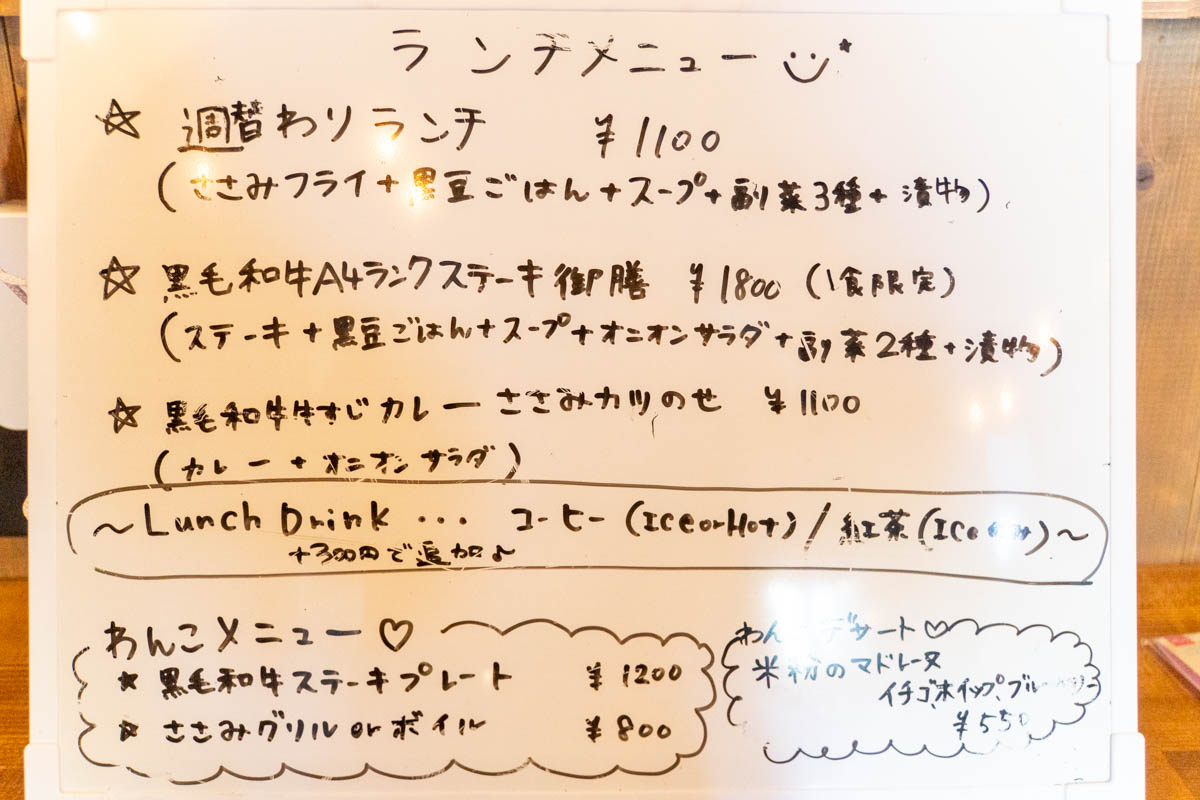 ランチメニュー
週替わりランチ ¥1100
(ささみフライ+黒豆ごはん+スープ+副菜3種+漬物)
黒毛和牛A4ランクステーキ御膳 ¥1800 (1食限定)
(ステーキ+黒豆ごはん+スープ+オニオンサラダ+副菜2種+漬物)
黒毛和牛牛すじカレー ささみカツのせ ¥1100
(カレー+オニオンサラダ)
~Lunch Drink ... コーヒー(IceorHot)/紅茶(Iceのみ)~
+300円で追加♪
わんこメニュー♡
★ 黒毛和牛ステーキプレート ¥1200
☆ ささみグリルorボイル ¥800
わんこデザート♡
米粉のマドレーヌ
イチゴ、ホイップ、ブルーベリー
¥550